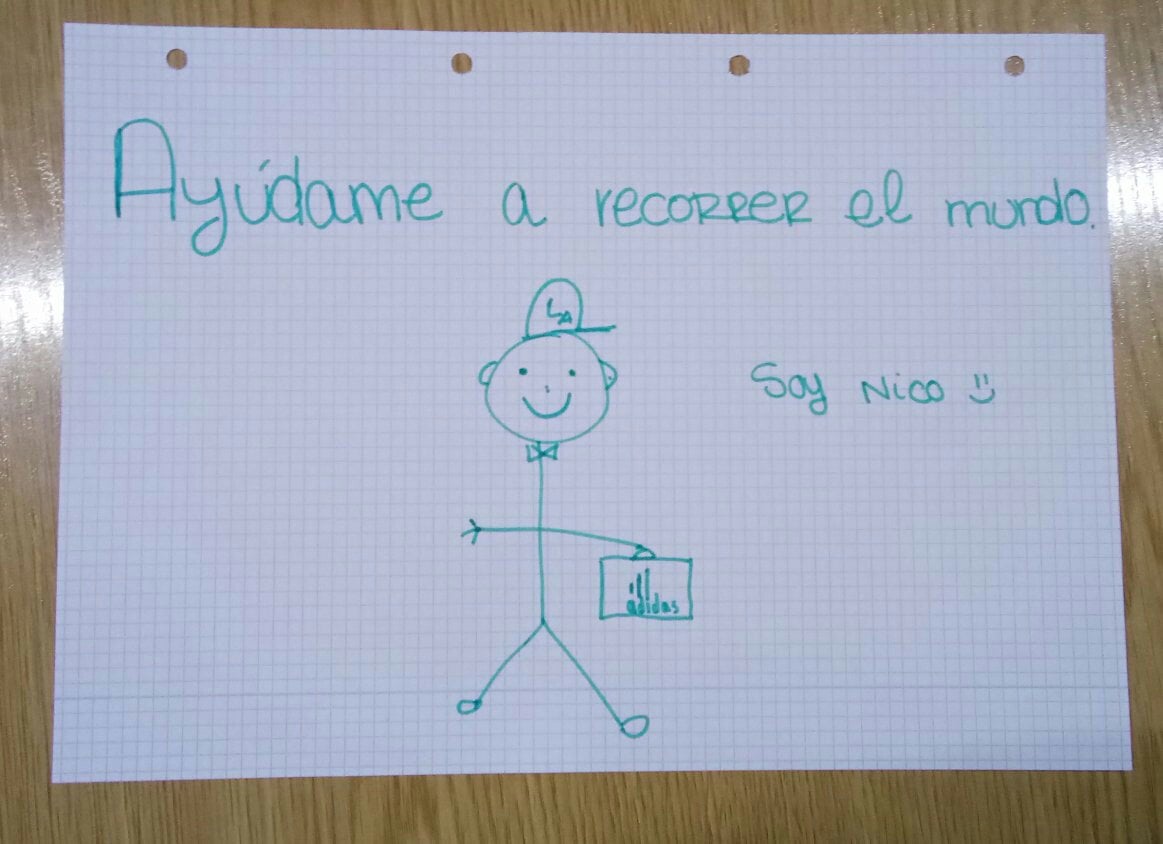 Ayúdame a recorrer el mundo.
LA
Soy Nico
adidas